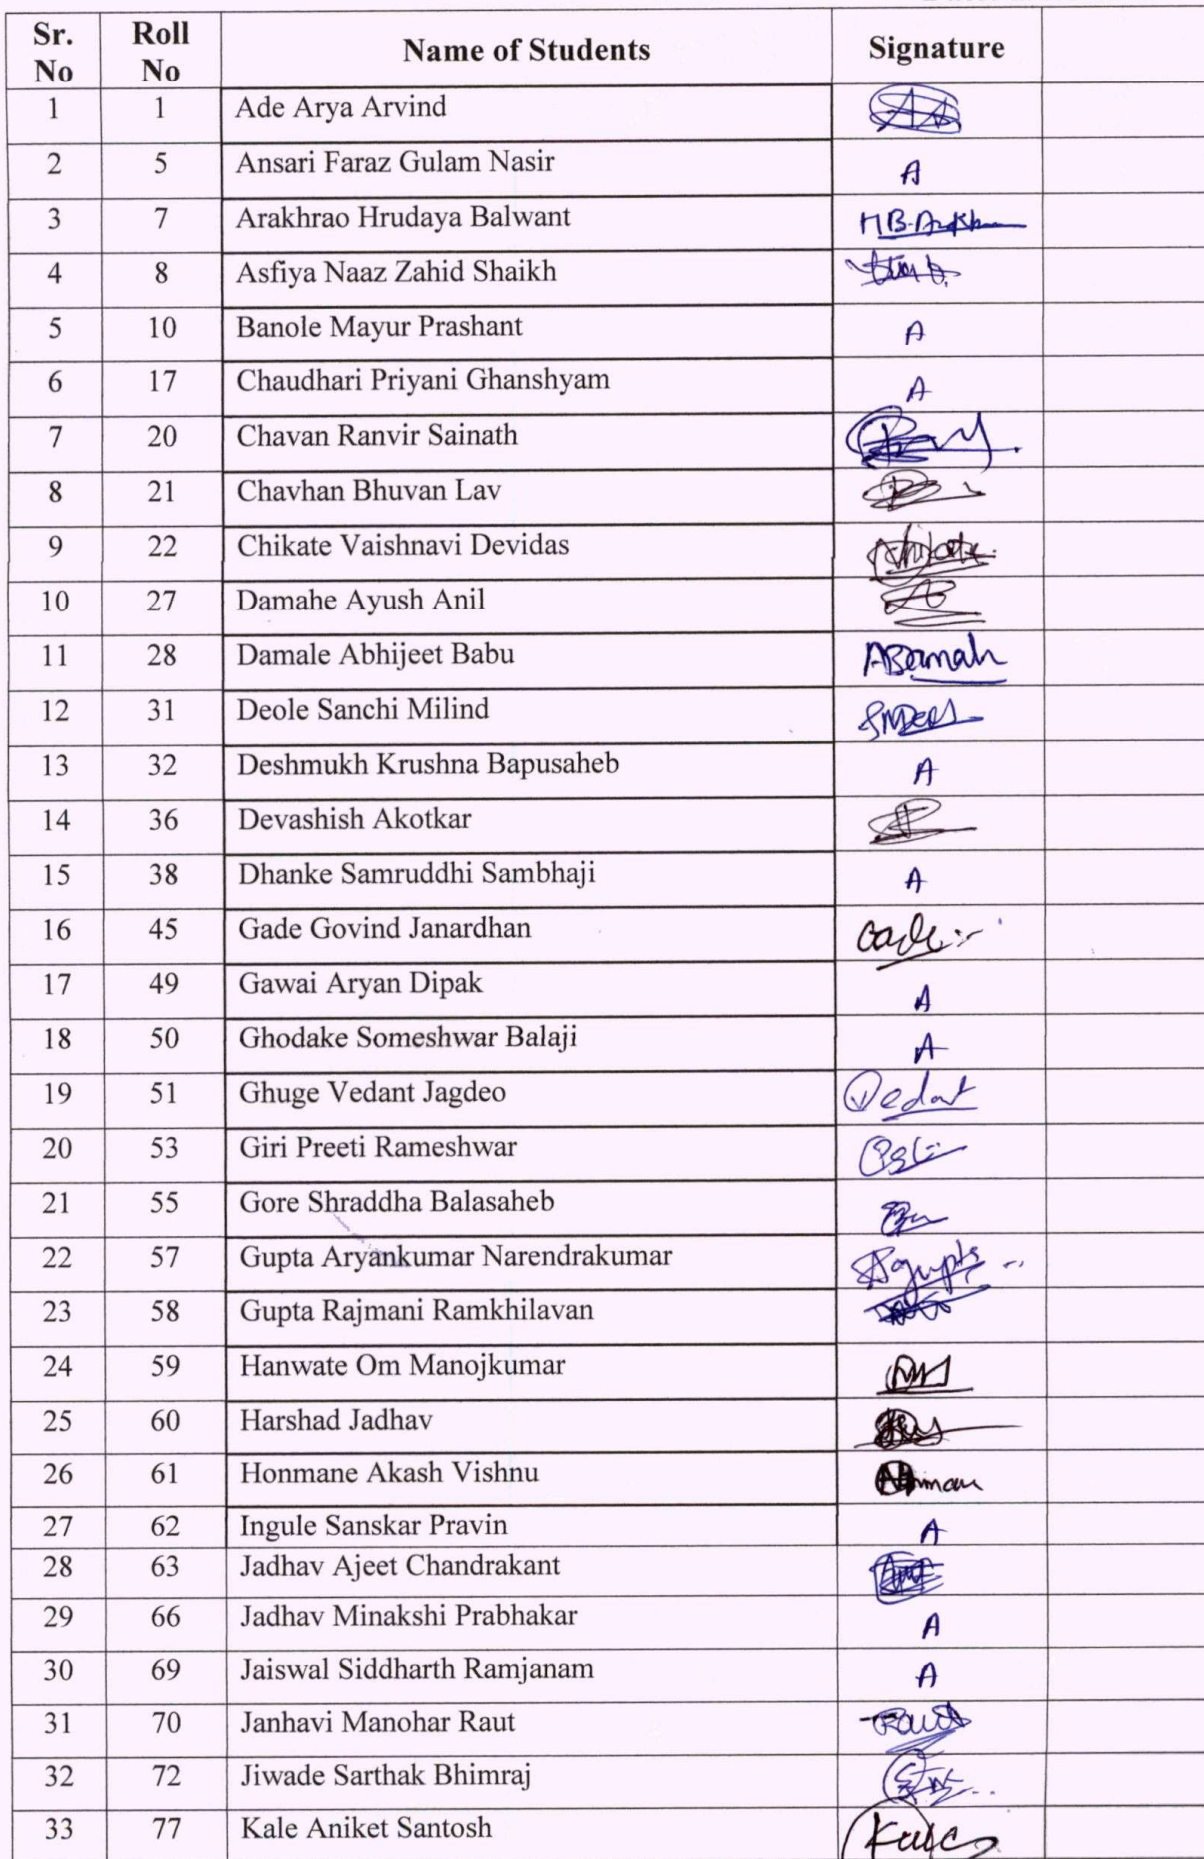 Sr. No Roll No Name of Students Signature
1 1 Ade Arya Arvind
2 5 Ansari Faraz Gulam Nasir A
3 7 Arakhrao Hrudaya Balwant
4 8 Asfiya Naaz Zahid Shaikh
5 10 Banole Mayur Prashant A
6 17 Chaudhari Priyani Ghanshyam A
7 20 Chavan Ranvir Sainath
8 21 Chavhan Bhuvan Lav
9 22 Chikate Vaishnavi Devidas
10 27 Damahe Ayush Anil
11 28 Damale Abhijeet Babu
12 31 Deole Sanchi Milind
13 32 Deshmukh Krushna Bapusaheb A
14 36 Devashish Akotkar
15 38 Dhanke Samruddhi Sambhaji A
16 45 Gade Govind Janardhan Gade
17 49 Gawai Aryan Dipak A
18 50 Ghodake Someshwar Balaji A
19 51 Ghuge Vedant Jagdeo Vedant
20 53 Giri Preeti Rameshwar
21 55 Gore Shraddha Balasaheb
22 57 Gupta Aryankumar Narendrakumar Agupta
23 58 Gupta Rajmani Ramkhilavan
24 59 Hanwate Om Manojkumar
25 60 Harshad Jadhav
26 61 Honmane Akash Vishnu
27 62 Ingule Sanskar Pravin A
28 63 Jadhav Ajeet Chandrakant
29 66 Jadhav Minakshi Prabhakar A
30 69 Jaiswal Siddharth Ramjanam A
31 70 Janhavi Manohar Raut Raut
32 72 Jiwade Sarthak Bhimraj
33 77 Kale Aniket Santosh Kale